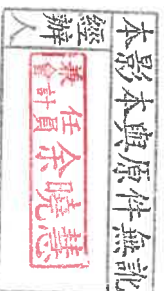 本影本與原件無訛
經辦人
兼會計員
任余曉慧